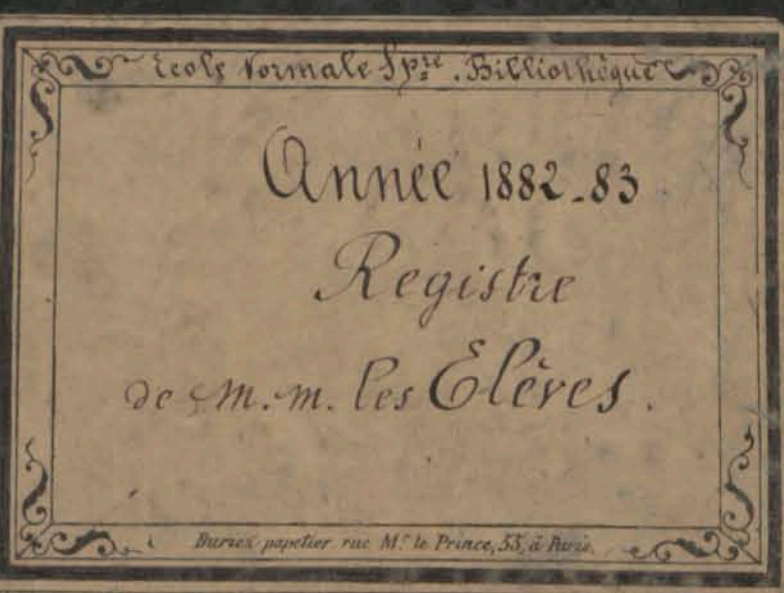 Ecole Normale Spre. Bibliothèque
Année 1882-83
Registre
de M.M. les Elèves.
papetier rue Mr. le Prince, 55, à Paris.